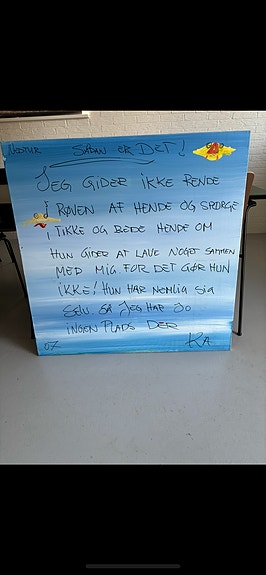 NEDTUR SÅDAN ER DET!
JEG GIDER IKKE RENDE
I RØVEN AF HENDE OG SPØRGE
TIKKE OG BEDE HENDE OM
HUN GIDER AT LAVE NOGET SAMMEN
MED MIG FOR DET GØR HUN
IKKE! HUN HAR NEMLIG SIG
SELV SÅ JEG HAR JO
INGEN PLADS DER
07 KA